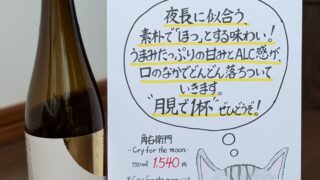 夜長に似合う、
素朴で「ほっ」とする味わい！
うまみたっぷりの甘みとALC感が
口のなかでどんどん落ちついて
いきます。
"月見で1杯"ぜひどうぞ！
角右衛門
- Cry for the moon -
720ml 1,540円